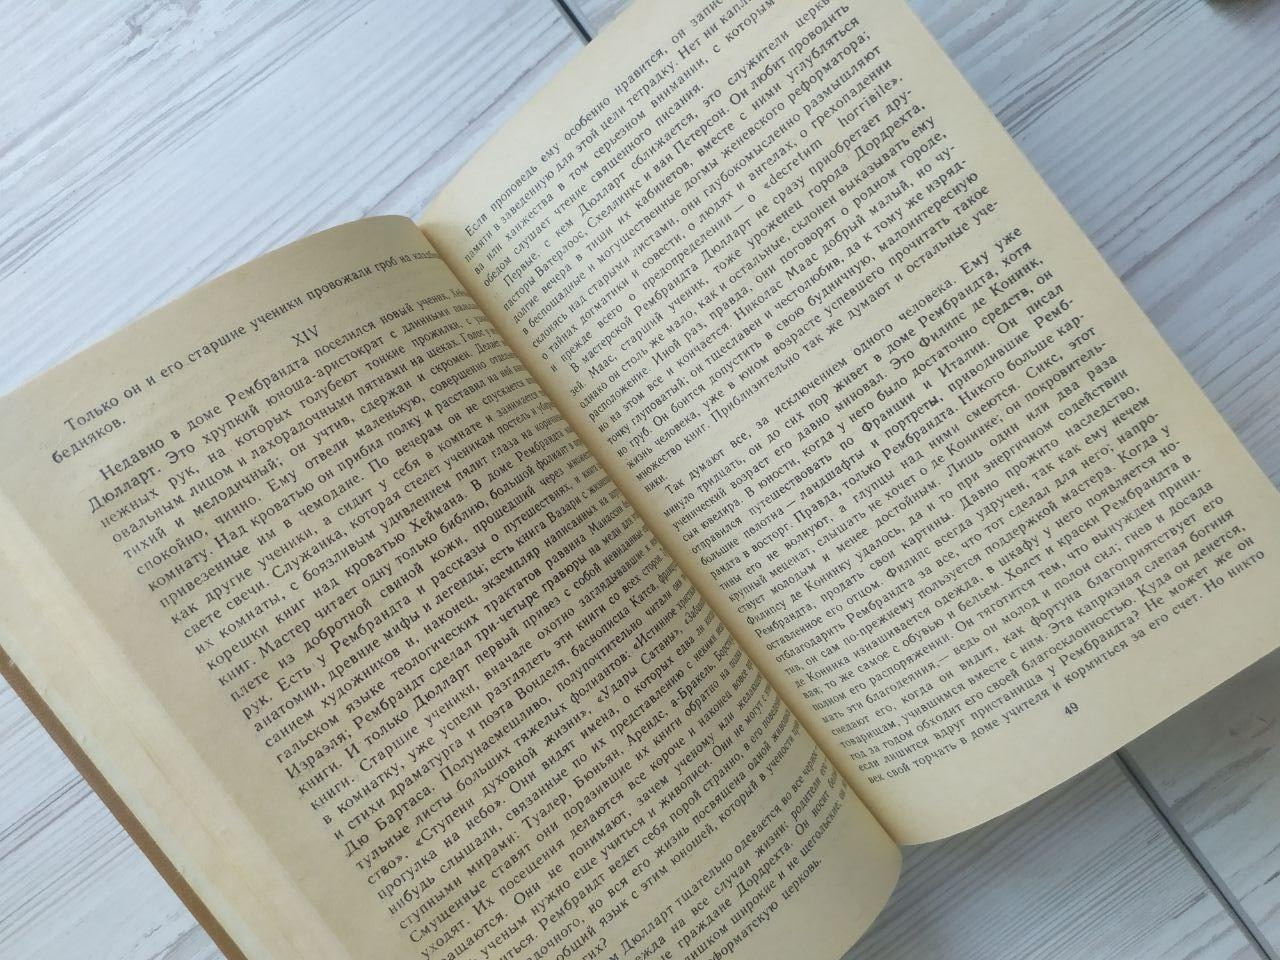 Только он и его старшие ученики провожали гроб на
бедняков.
XIV
Недавно в доме Рембрандта поселился новый ученик,
Дюлларт. Это хрупкий юноша-аристократ с длинными
нежных рук, на которых голубеют тонкие прожилки, с
овальным лицом и лихорадочными пятнами на щеках. Голос у
тихий и мелодичный; он учтив, сдержан и скромен. Делает
спокойно, чинно. Ему отвели маленькую, совершенно
комнату. Над кроватью он прибил полку и расставил на ней
привезенные им в чемодане. По вечерам он не спускается
как другие ученики, а сидит у себя в комнате и занимается
свете свечи. Служанка, которая стелет ученикам постель и
их комнаты, с боязливым удивлением пялит глаза на
корешки книг над кроватью Хеймана. В доме Рембрандта
книг. Мастер читает одну только библию, большой фолиант в
плете из добротной свиной кожи, прошедший через
рук. Есть у Рембрандта и рассказы о путешествиях, и
анатомии, древние мифы и легенды; есть книга Вазари с
санием художников и, наконец, экземпляр написанных на
гальском языке теологических трактатов раввина Манассе
Израэля: Рембрандт сделал три-четыре гравюры на меди для
книги. И только Дюлларт первый привез с собой
книги. Старшие ученики, вначале охотно заглядывавшие к
в комнатку, уже успели разглядеть эти книги со всех сторон
и стихи драматурга и поэта Вондела, баснописца Катса,
Дю Бартаса. Полунасмешливо, полупочтительно читали они
тульные листы больших тяжелых фолиантов: «Истинное
ство». «Ступени духовной жизни». «Удары Сатаны»,
прогулка на небо». Они видят имена, о которых едва ли
нибудь слышали, связанные по их представлению с некими
ступными мирами: Туадер, Бюньян, Арендс, а-Бракель,
Смущенные ставят они поразившие их книги обратно на
уходят. Их посещения делаются все короче и наконец вовсе
ащаются. Они не понимают, зачем ученому или
ученым нужно еще учиться и живописи. Они не могут
иться. Рембрандт ведет себя порой странно, в его
адочного, но вся его жизнь посвящена одной
общий язык с этим юношей, который в учености
гих?
Дюлларт тщательно одевается во все
ежда на все случаи жизни; родители его
ые граждане Дордрехта. Он носит
лишком широкие и не щегольские
форматскую церковь.
Если проповедь ему особенно нравится, он
памяти в заведенную для этой цели тетрадку. Нет ни
ва или ханжества в том серьезном внимании, с которым
обедом слушает чтение священного писания.
Первые, с кем Дюлларт сближается, это служители
пасторы Ватерлоос, Схеллинкс и ван Петерсон. Он любит проводить
долгие вечера в тиши их кабинетов, вместе с ними углубляться
в беспощадные и могущественные догмы женевского реформатора;
склонясь над старыми листами, они глубокомысленно размышляют
о тайнах догматики и совести, о людях и ангелах, о грехопадении
и прежде всего о предопределении — о «decretum horribile».
В мастерской Рембрандта Дюлларт не сразу приобретает дру-
зей. Маас, старший ученик, тоже уроженец города Дордрехта,
однако он столь же мало, как и остальные, склонен выказывать ему
расположение. Иной раз, правда, они поговорят о родном городе,
но на этом все и кончается. Николас Маас добрый малый, но чу-
точку глуповатый; он тщеславен и честолюбив, да к тому же изряд-
но груб. Он боится допустить в свою будничную, малоинтересную
жизнь человека, уже в юном возрасте успевшего прочитать такое
множество книг. Приблизительно так же думают и остальные уче-
ники.
Так думают все, за исключением одного человека. Ему уже
минуло тридцать, он до сих пор живет в доме Рембрандта, хотя
ученический возраст его давно миновал. Это Филипс де Конинк,
сын ювелира. В юности, когда у него было достаточно средств, он
отправился путешествовать по Франции и Италии. Он писал
большие полотна — ландшафты и портреты, приводившиеRemб-
рандта в восторг. Правда, только Рембрандта. Никого больше кар-
тины его не волнуют, а глупцы над ними смеются. Сикс, этот
крупный меценат, слышать не хочет о де Конинке; он покровитель-
ствует молодым и менее достойным. Лишь один или два раза
Филипсу де Конинку удалось, да и то при энергичном содействии
Рембрандта, продать свои картины. Давно прожито наследство,
оставленное его отцом. Филипс всегда удручен, так как ему нечем
отблагодарить Рембрандта за все, что тот сделал для него; напро-
тив, он сам по-прежнему пользуется поддержкой мастера. Когда у
де Конинка изнашивается одежда, в шкафу у него появляется но-
вая; то же самое с обувью и бельем. Холст и краски Рембрандта в
полном его распоряжении. Он тяготится тем, что вынужден прини-
мать эти благодеяния,— ведь он молод и полон сил; гнев и досада
снедают его, когда он видит, как фортуна благоприятствует его
товарищам, учившимся вместе с ним. Эта капризная слепая богиня
год за годом обходит его своей благосклонностью. Куда он денется,
если лишится вдруг пристанища у Рембрандта? Не может же он
век свой торчать в доме учителя и кормиться за его счет. Но никто
49